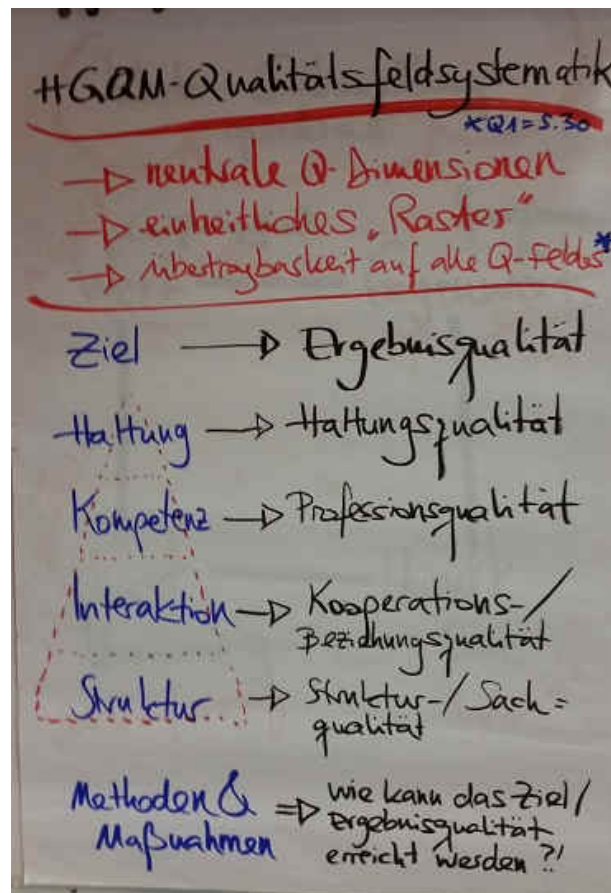 #GQM-Qualitätsfeldsystematik
*Q1=S.30
→ neutrale Q-Dimensionen
→ einheitliches „Raster"
→ Übertragbarkeit auf alle Q-Felder*
Ziel → Ergebnisqualität
Haltung → Haltungsqualität
Kompetenz → Professionsqualität
Interaktion → Kooperations-/
Beziehungsqualität
Struktur → Struktur-/Sach=
qualität
Methoden & ⇒ wie kann das Ziel/
Maßnahmen ergebnisqualität
erreicht werden?!